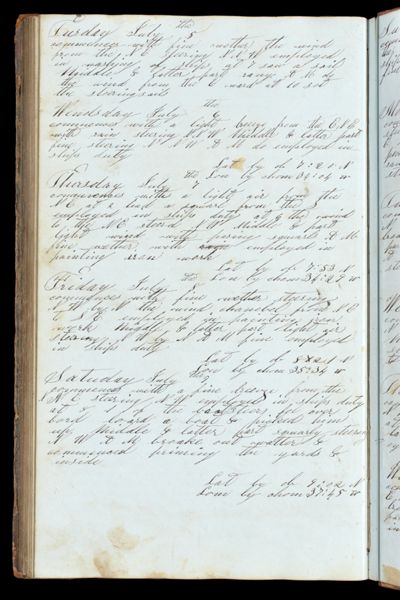 Tuesday July the 5
commences with fine wether the wind
from the N E stering N W employed
in ships at 7 saw a sail
Middle & latter part A M do
the wind from the E ward at 10 set
the stering sails
Wensday July the 6
commences with a light breeze from the E N E
with rain stering N N W Middle & latter part
fine stering N N W A M do employed in
ships duty
Lat by ob 7:20 N
Lon by chom 34:04 W
Thursday July the 7
commences with a light air from the
N E at 2 had a from the S
employed in ships duty at 6 the wind
to the N E sterd N W Middle & part
light wind with squars A M
fine wether with employed in
painting iron work
Lat by ob 7:53 N
Lon by chom 34:27 W
Friday July the 8
commences with fine wether stering
N W by N the wind changed from N E
to S E employed in painting iron
work Middle & latter part light air
stering N W by N A M fine employed
in ships duty
Lat by ob N
Lon by chom 35:34 W
Saturday July the 9
commences with a fine breeze from the
N E stering N W employed in ships duty
at 5 1 of the fel over
bord loard a boat & picked him
up Middle & latter part squarly stering
N W A M broake out watter &
commenced the yards &
inside
Lat by ob 9:02 N
Lon by chom 37:45 W